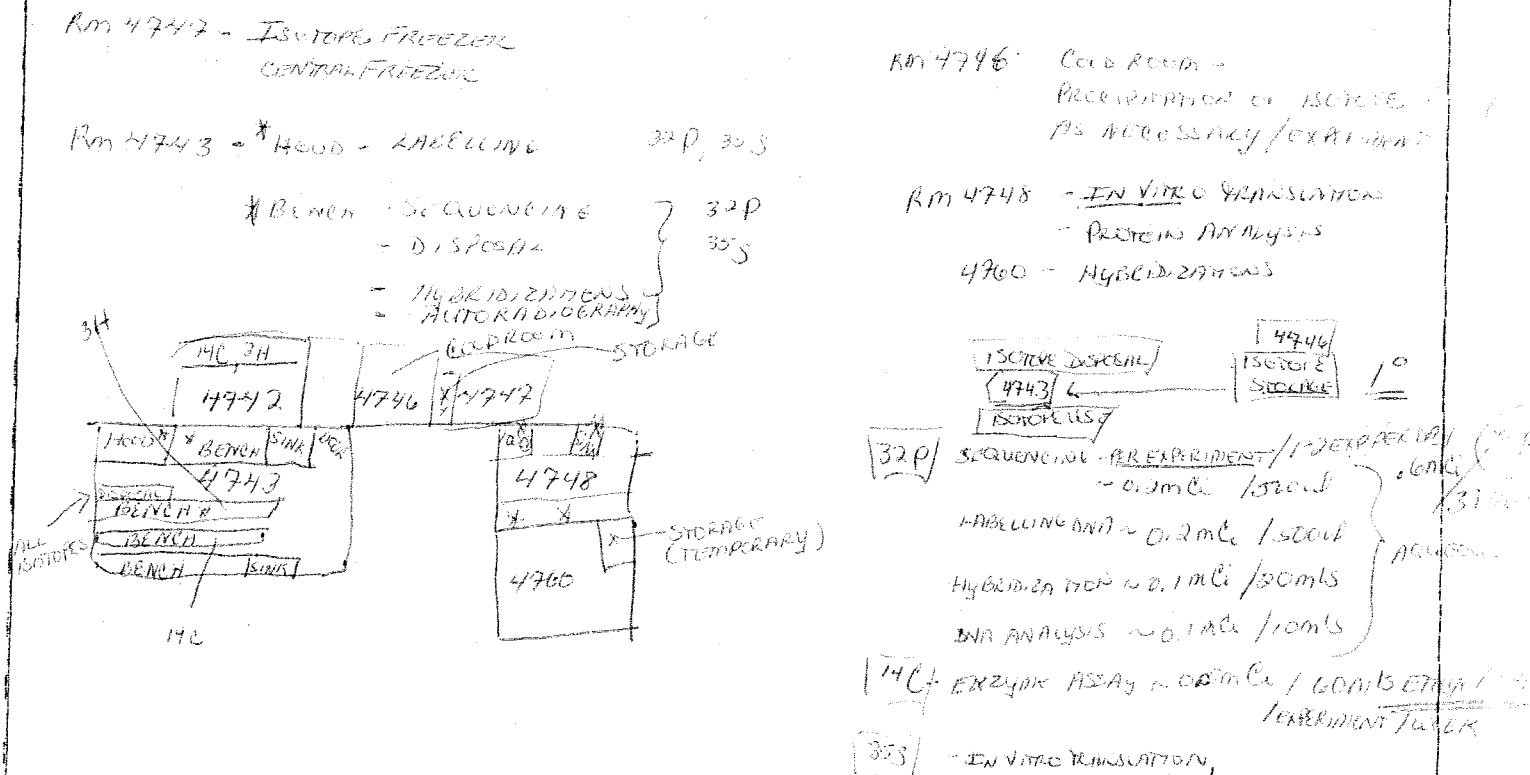 Rm 4747 - ISOTOPE FREEZER
CENTRAL FREEZER
Rm 4743 - *HOOD - LABELLING 32P, 35S
*BENCH - SEQUENCING 32P
- DISPOSAL 35S
- HYBRIDIZATIONS
- AUTORADIOGRAPHY
3H
COLDROOM
STORAGE
14C, 3H
4742
4746
X
4747
HOOD*
* BENCH
SINK
4743
DISPOSAL
BENCH *
BENCH
BENCH
SINK
ALL ISOTOPES
14C
4748
X X
X
STORAGE
(TEMPORARY)
4760
RM 4746 COLD ROOM -
PRECIPITATION OF ISOTOPE
AS NECESSARY / EXPERIMENT
RM 4748 - IN VITRO TRANSLATION
- PROTEIN ANALYSIS
4760 - HYBRIDIZATIONS
4746
ISOTOPE DISPOSAL
ISOTOPE
STORAGE
1°
4743
ISOTOPE USE
32P SEQUENCING - PER EXPERIMENT / 1-2 EXP PER DAY
~ 0.2mCi / 500ul
.6mCi
LABELLING DNA ~ 0.2mCi / 500ul
HYBRIDIZATION ~ 0.1mCi / 20mls
DNA ANALYSIS ~ 0.1mCi / 10mls
14C ENZYME ASSAY ~ mCi / 60mls
/EXPERIMENT / WEEK
35S - IN VITRO TRANSLATION,